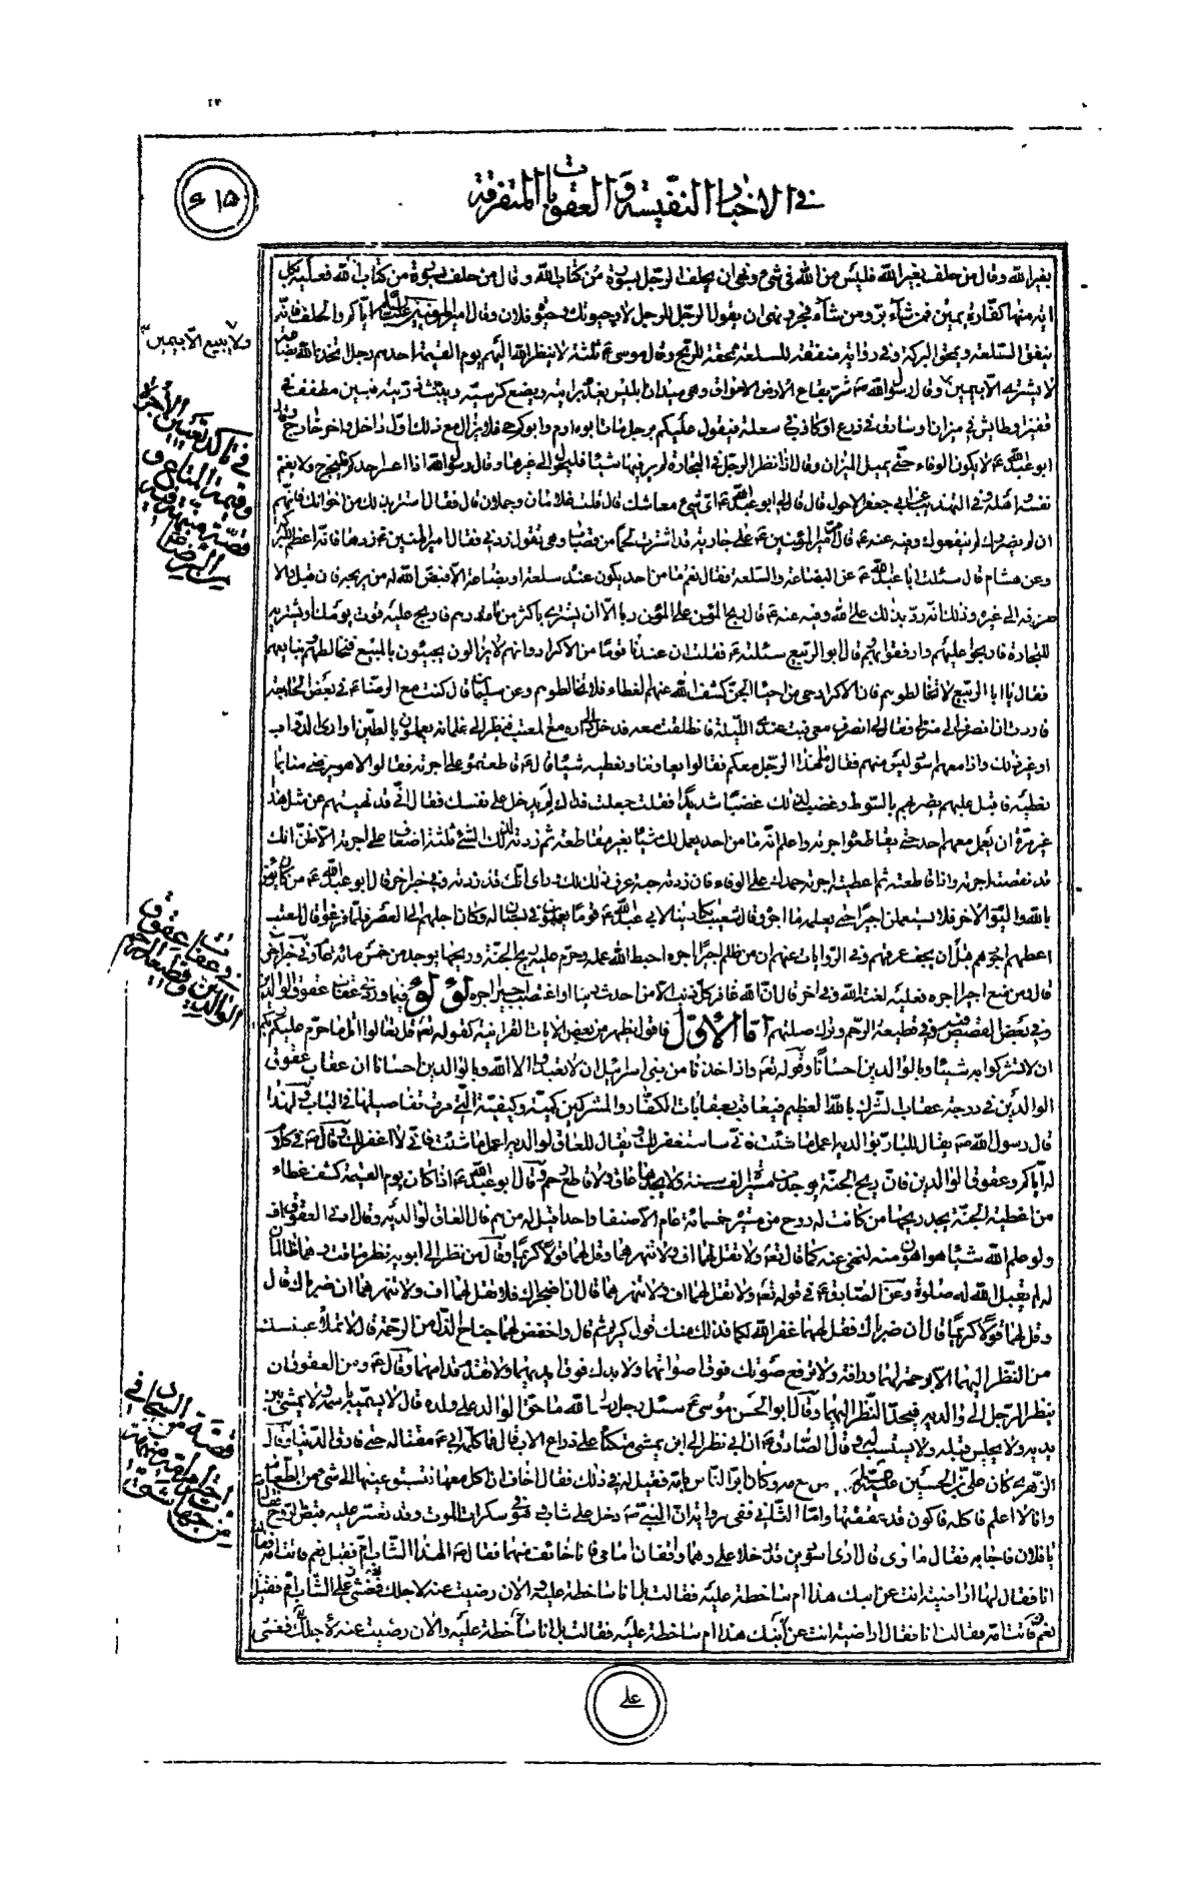 في الاخبار النفيسة و العقوبات المتفرقة
بغير الله وقال من حلف بغير الله فليس من الله في شئ ونهى ان يحلف الرجل بسورة من كتاب الله وقال من حلف بسورة من كتاب الله فعليه بكل
اية منها كفارة يمين فمن شاء بر ومن شاء فجر ونهى ان يقول الرجل للرجل لا وحيوتك وحيوة فلان وقال امير المؤمنين اياكم والحلف فانه
ينفق السلعة ويمحق البركة وفي رواية منفقة للسلعة ممحقة للربح وقال موسى ثلثة لا ينظر الله اليهم يوم القيمة احدهم رجل اتخذ الله بضاعة
لا يشتري الا بيمين وقال رسول الله شر بقاع الارض الاسواق وهي ميدان ابليس يغدو برايته ويضع كرسيه ويبث ذريته فبين مطفف في
قفيز وطايش في ميزان او سارق في ذرع او كاذب في سلعته فيقول عليكم برجل مات ابوه وابوكم حي فلا يزال مع ذلك اول داخل واخر خارج
ابو عبد الله لا يكون الوفاء حتى يميل الميزان وقال اذا نظر الرجل في التجارة لم ير فيها شيئا فليتحول الى غيرها وقال رسول الله اذا اعسر احدكم فليخرج ولا يغم
نفسه واهله وفي التهذيب عن ابي جعفر الاحول قال قال لي ابو عبد الله اي شئ معاشك قال قلت غلامان وجملان قال فقال استر بذلك من اخوانك فانهم
ان لم يضروك لم ينفعوك وفيه عنه قال مر امير المؤمنين على جارية قد اشترت لحما من قصاب وهي تقول زدني فقال امير المؤمنين زدها فانه اعظم للبركة
وعن هشام قال سئلت ابا عبد الله عن البضاعة والسلعة فقال نعم ما من احد يكون عنده سلعة او بضاعة الا قبض الله له من يربحه فان قبل والا
صرفه الى غيره وذلك انه رد بذلك على الله وفيه عنه قال ربح المؤمن على المؤمن ربا الا ان يشتري باكثر من مائة درهم فاربح عليه قوت يومك او يشتريه
للتجارة فاربحوا عليهم وارفقوا بهم قال ابو الربيع سئلته فقلت ان عندنا قوما من الاكراد وانهم لا يزالون يجيئون بالبيع فنخالطهم ونبايعهم
فقال يا ابا الربيع لا تخالطوهم فان الاكراد حي من احياء الجن كشف الله عنهم الغطاء فلا تخالطوهم وعن سليمن قال كنت مع الرضا في بعض الحاجة
فاردت ان انصرف الى منزلي فقال لي انصرف معي فبت عندي الليلة فانطلقت معه فدخل الى داره مع المعتب فنظر الى غلمانه يعملون بالطين اواري الدواب
او غير ذلك واذا معهم اسود ليس منهم فقال ما هذا الرجل معكم فقالوا يعاوننا ونعطيه شيئا قال قاطعتموه على اجرته فقالوا لا هو يرضى منا بما
نعطيه فاقبل عليهم يضربهم بالسوط وغضب لذلك غضبا شديدا فقلت جعلت فداك لم تدخل على نفسك فقال اني قد نهيتهم عن مثل هذا
غير مرة ان يعمل معهم احد حتى يقاطعوه اجرته واعلم انه ما من احد يعمل لك شيئا بغير مقاطعة ثم زدته لذلك الشئ ثلثة اضعاف على اجرته الا ظن انك
قد نقصته اجرته واذا قاطعته ثم اعطيته اجرته حمدك على الوفاء فان زدته حبة عرف ذلك لك وراى انك قد زدته وفي خبر اخر قال ابو عبد الله من كان يؤمن
بالله واليوم الاخر فلا يستعملن اجيرا حتى يعلمه ما اجره وقال شعيب تكارينا لابي عبد الله قوما يعملون في بستان له وكان اجلهم الى العصر فلما فرغوا قال لمعتب
اعطهم اجورهم قبل ان يجف عرقهم وفي الروايات عنهم ان من ظلم اجيرا اجره احبط الله عمله وحرم عليه ريح الجنة وريحها يوجد من خمس مائة عام وفي خبر اخر
قال ومن منع اجيرا اجره فعليه لعنة الله وفي اخر قال ان الله غافر كل ذنب الا من احدث دينا او اغتصب اجيرا اجره لؤلؤ فيما ورد في عقاب عقوق الوالدين
وفي بعض قصص فيه وفي قطيعة الرحم وترك صلتهم اما الاول فاقول يظهر من بعض الايات القرانية كقوله تعم قل تعالوا اتل ما حرم عليكم ربكم
ان لا تشركوا به شيئا وبالوالدين احسانا وقوله تعم واذ اخذنا من بني اسرائيل ان لا تعبدوا الا الله وبالوالدين احسانا ان عقاب عقوق
الوالدين في درجة عقاب الشرك بالله العظيم فيعاقب بعقابات الكفار والمشركين كمية وكيفية التي مرت تفاصيلها في الباب ولهذا
قال رسول الله يقال للبار بوالديه اعمل ما شئت فاني ساغفر لك ويقال للعاق لوالديه اعمل ما شئت فاني لا اغفر لك وقال في كلام
له اياكم وعقوق الوالدين فان ريح الجنة يوجد من مسيرة الف سنة ولا يجدها عاق ولا قاطع رحم وقال ابو عبد الله اذا كان يوم القيمة كشف غطاء
من اغطية الجنة يجد ريحها من كانت له روح من مسيرة خمسمائة عام الا صنفا واحدا قيل له من هم قال العاق لوالديه وقال ادنى العقوق اف
ولو علم الله شيئا هو اهون منه لنهى عنه كما قال تعم ولا تقل لهما اف ولا تنهرهما وقل لهما قولا كريما وقال من نظر الى ابويه نظر ماقت وهما ظالمان
له لم يقبل الله له صلوة وعن الصادق في قوله تعم ولا تقل لهما اف ولا تنهرهما قال ان اضجراك فلا تقل لهما اف ولا تنهرهما ان ضرباك قال
وقل لهما قولا كريما قال ان ضرباك فقل لهما غفر الله لكما فذلك منك قول كريم ثم قال واخفض لهما جناح الذل من الرحمة قال لا تملأ عينيك
من النظر اليهما الا برحمة لهما ورافة ولا ترفع صوتك فوق اصواتهما ولا يدك فوق ايديهما ولا تقدم قدامهما وقال ومن العقوق ان
ينظر الرجل الى والديه فيحد النظر اليهما وقال ابو الحسن موسى سئل رجل رسول الله ما حق الوالد على ولده قال لا يسميه باسمه ولا يمشي بين
يديه ولا يجلس قبله ولا يستسب له وقال الصادق ان ابي نظر الى ابن يمشي متكئا على ذراع الاب قال فما كلمه ابي مقتا له حتى فارق الدنيا وقال
الزهري كان علي بن الحسين وكان ابر الناس بامه فقيل له في ذلك فقال اخاف ان اكل معها فتسبق عينها الى شئ من الطعام
وانا لا اعلم فاكله فاكون قد عققتها واما الثاني ففي رواية ان النبي دخل على شاب في سكرات الموت وقد تعسر عليه قبض الروح فقال
يا فلان فاجابه فقال ما ترى قال ارى اسودين قد دخلا علي وهما وقفا امامي فانا خائف منهما فقال الهذا الشاب ام فقيل نعم فاتت امه فقالت
انا فقال لها اراضية انت عن ابنك هذا ام ساخطة عليه فقالت بل انا ساخطة عليه والان رضيت عنه لاجلك فغشي على الشاب ام فقيل
نعم فاتت امه فقالت انا فقال اراضية انت عن ابنك هذا ام ساخطة عليه فقالت بل انا ساخطة عليه والان رضيت عنه لاجلك فغشي
ولا يبيع الا بيمين
في تاكد تعيين الاجرة
وقيمة المتاع و
قصة
الرضا
في عقاب عقوق
الوالدين وقطيعة الرحم
قصة السجاد في
علي